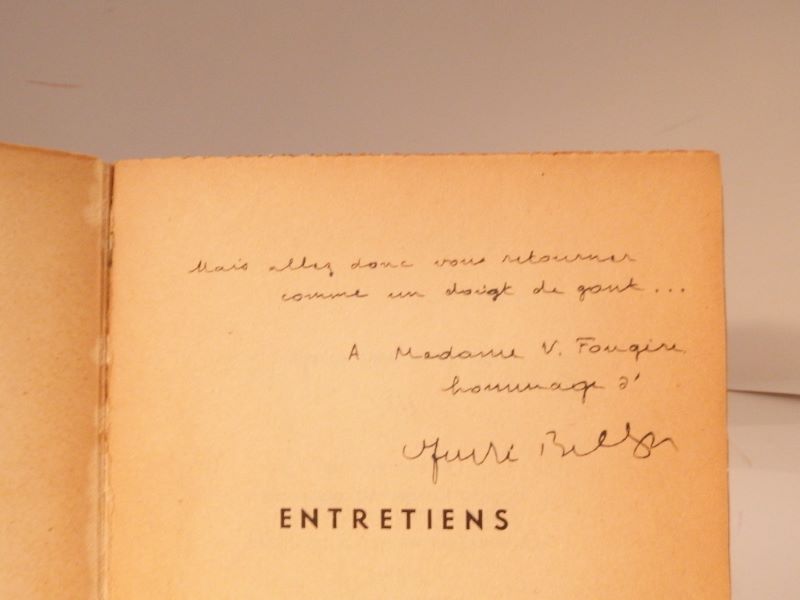 Mais allez donc vous retourner
comme un doigt de gant...
A Madame V. Fougère
hommage d'
ENTRETIENS